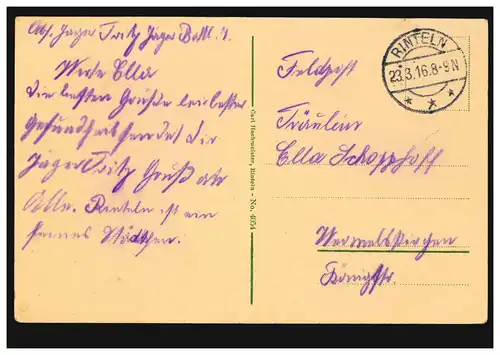 Abs. Jäger Fritz Jäger Batl. 7.
Werte Ella
Die besten Grüße bei bester
Gesundheit sendet dir
Jäger Fritz Gruß an
Alle. Rinteln ist ein
Städtchen.
Carl Hachmeister, Rinteln - No. 4054
RINTELN
23.3.16.8-9N
Feldpost
Fräulein
Ella Schopphoff
Wermelskirchen
Königstr.